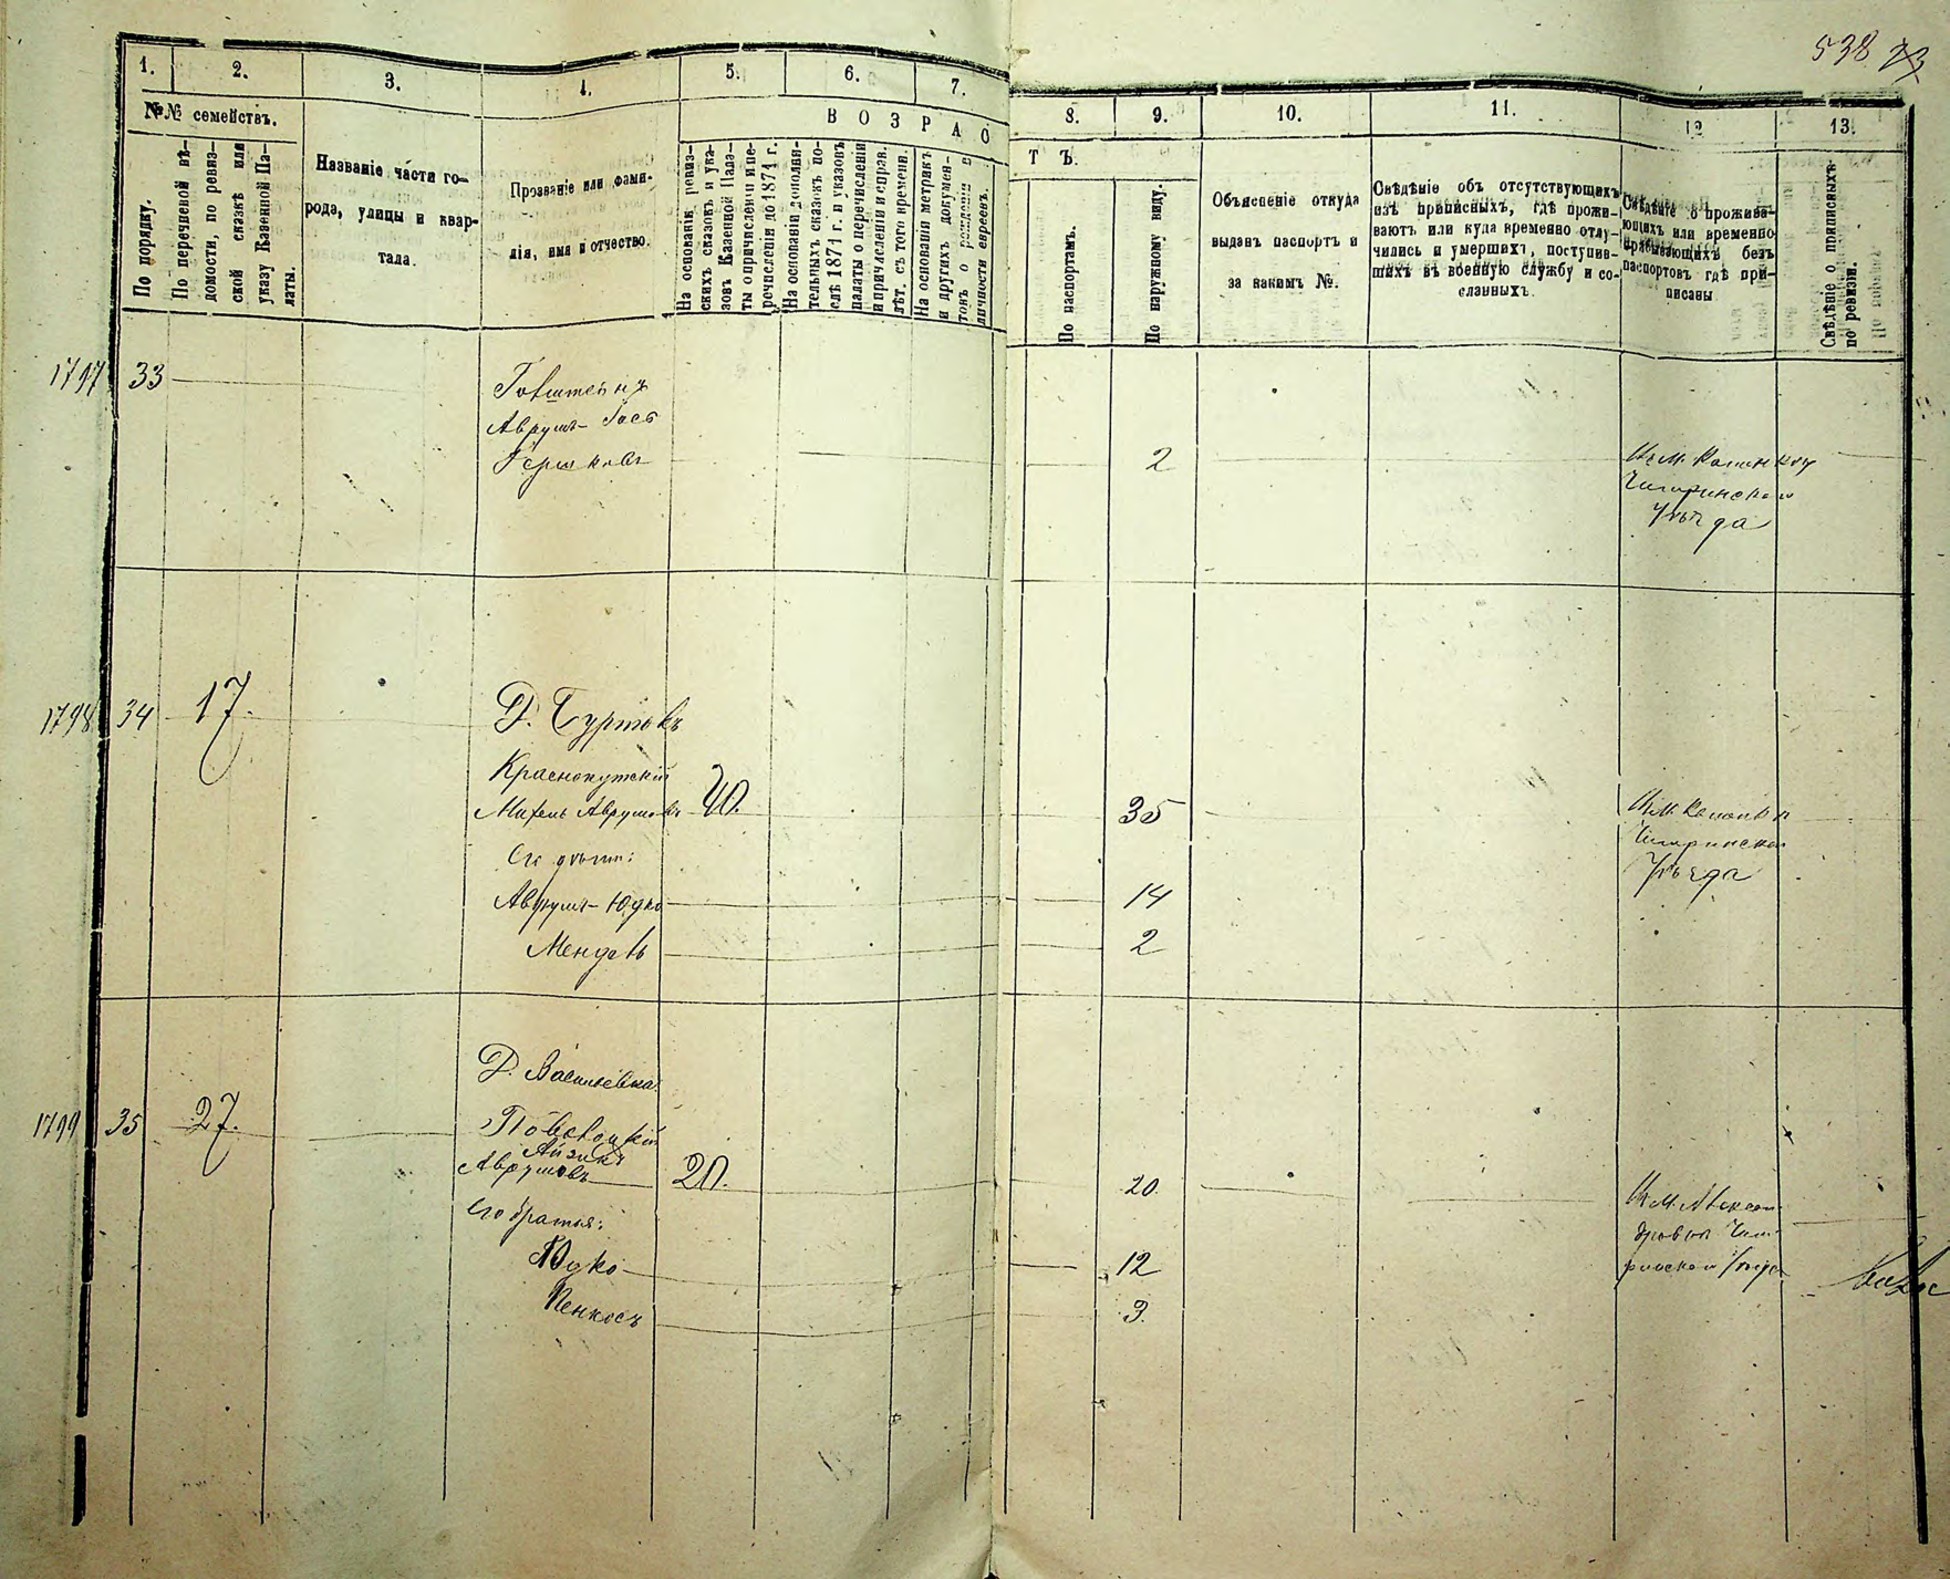 538 73
1. 2. 3. 4. 5. 6. 7. 8. 9. 10. 11. 12 13.
№№ семействъ.
По порядку.
По перечневой вѣ-
домости, по ревиз-
ской сказкѣ или
указу Казенной Па-
латы.
Названіе части го-
рода, улицы и квар-
тала.
Прозваніе или фами-
лія, имя и отчество.
ВОЗРАСТЪ.
На основаніи ревиз-
скихъ сказокъ и ука-
зовъ Казенной Пала-
ты о причисленіи и пе-
речисленіи до 1871 г.
На основаніи дополни-
тельныхъ сказокъ по-
слѣ 1871 г. и указовъ
палаты о перечисленіи
и причисленіи и справ.
лѣт. съ того времени.
На основаніи метрикъ
и другихъ докумен-
товъ о рожденіи и
личности евреевъ.
По паспортамъ.
По наружному виду.
Объясненіе откуда
выданъ паспортъ и
за какимъ №.
Свѣдѣніе объ отсутствующихъ
изъ приписныхъ, гдѣ прожи-
ваютъ или куда временно отлу-
чились и умершихъ, поступив-
шихъ въ военную службу и со-
сланныхъ.
Свѣдѣніе о прожива-
ющихъ или временно
пребывающихъ безъ
паспортовъ гдѣ при-
писаны
Свѣдѣніе о приписныхъ
по ревизіи.
1797 33
Аврумъ-
Гершковъ 2
Изъ М.
Чигиринскаго
Уѣзда
1798 34 17.
Д. Буртовъ
Краснокутскій
Михель Аврумовъ 40. 35
Изъ М.
Чигиринскаго
Уѣзда
Его дѣти:
Аврумъ-Юдко 14
Мендель 2
Д. Васильевка
1799 35 27.
Айзикъ
Аврумовъ 20. 20
Изъ М. Алексан-
дровки Чиги-
ринскаго Уѣзда
Его братья:
Юдко 12
Пенкосъ 3.